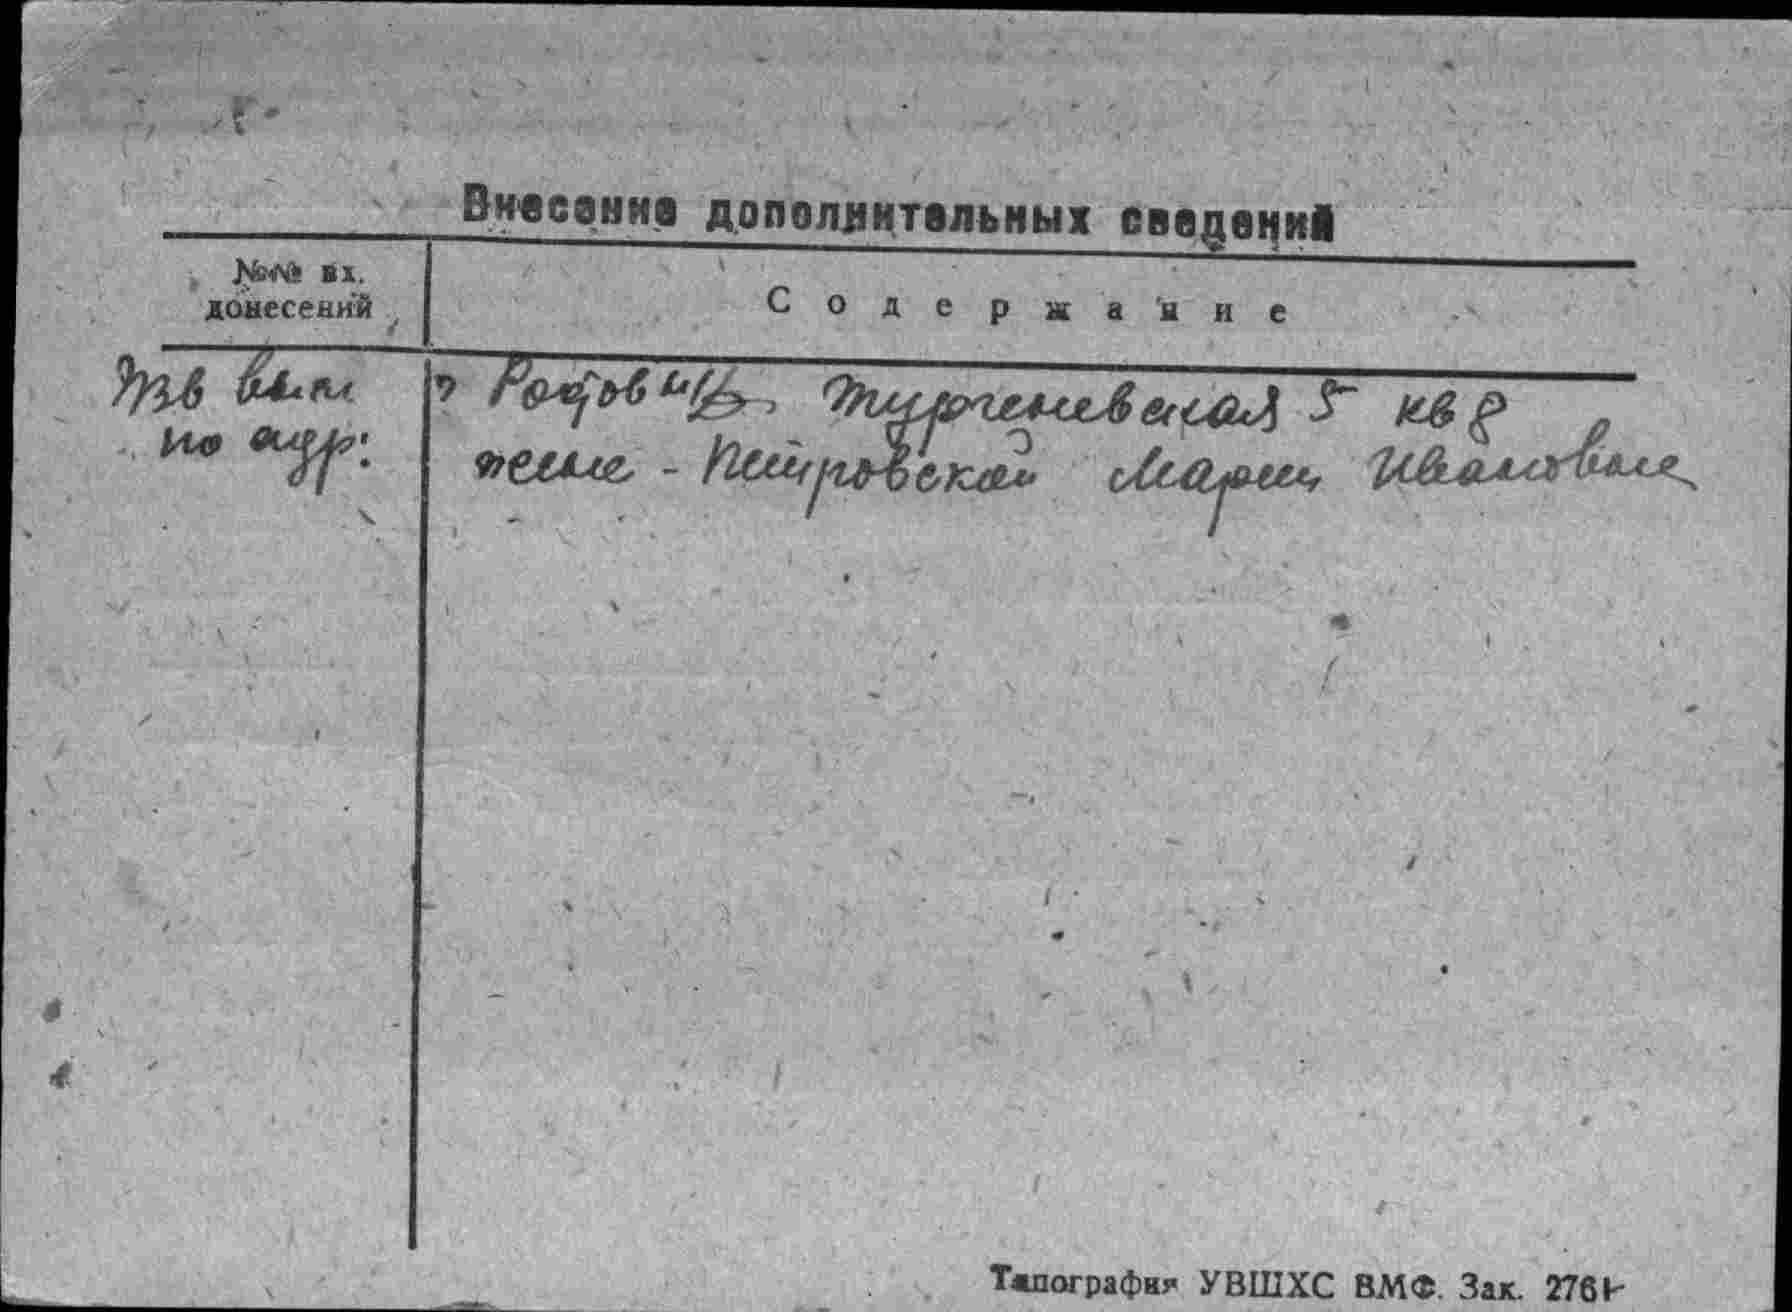 Внесение дополнительных сведений
№№ вх. донесений
Содержание
Изв вып г Ростов н/Д, Тургеневская 5 кв 8
по адр: жене - Петровской Марии Ивановне
Типография УВШХС ВМФ. Зак. 276